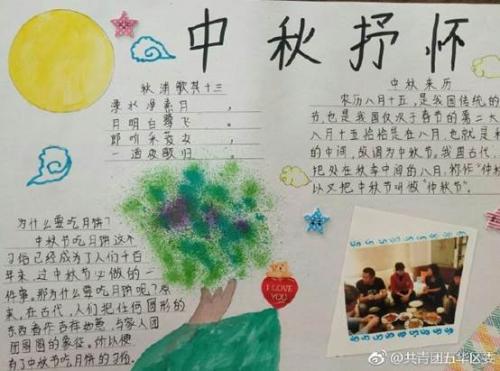 中秋抒怀
秋浦歌其十三
渌水净素月，
月明白鹭飞。
郎听采菱女，
一道夜歌归。
中秋来历
农历八月十五，是我国传统的
也是我国仅次于春节的第二大
八月十五恰恰是在八月，也就是
的中间，故谓为中秋节。我国古代
把处在秋季中间的八月，称作“仲秋
以又把中秋节叫做“仲秋节”。
为什么要吃月饼？
中秋节吃月饼这个
习俗已经成为了人们千百
年来，过中秋节必做的一
件事。那为什么要吃月饼呢？原
来，在古代，人们把任何圆形的
东西看作吉祥如意，与家人团
团圆圆的象征。所以便
有了中秋节吃月饼的习俗。
I LOVE
YOU
@共青团五华区委